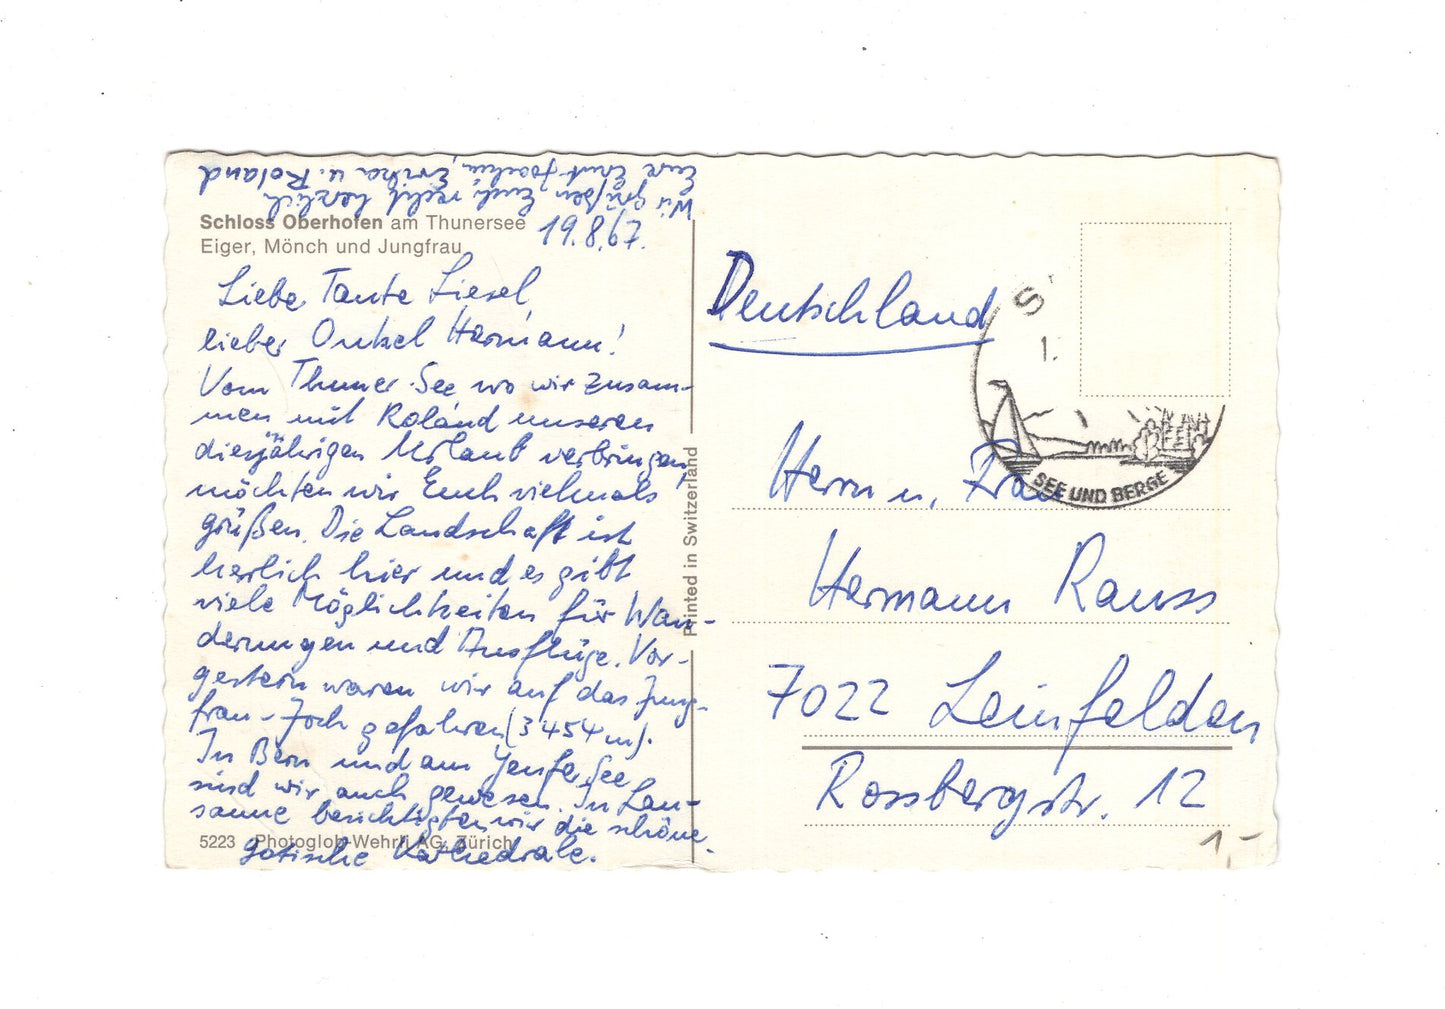 Schloss Oberhofen am Thunersee
Eiger, Mönch und Jungfrau
19.8.67.
Liebe Tante Liesel
lieber Onkel Hermann!
Vom Thuner-See wo wir zusam-
men mit Roland unseren
diesjährigen Urlaub verbringen,
möchten wir Euch vielmals
grüßen. Die Landschaft ist
herrlich hier und es gibt
viele Möglichkeiten für Wan-
derungen und Ausflüge. Vor-
gestern waren wir auf das Jung-
frau-Joch gefahren (3454 m).
In Bern und am Genfer See
sind wir auch gewesen. In Lau-
sanne besichtigten wir die schöne
gotische Kathedrale.
Wir grüßen Euch recht herzlich
Eure Ernst-Joachim, Erika u. Roland
5223 Photoglob-Wehrli AG, Zürich
Printed in Switzerland
Deutschland
S
1.
SEE UND BERGE
Herrn u. Frau
Hermann Rauss
7022 Leinfelden
Rossbergstr. 12
1,-